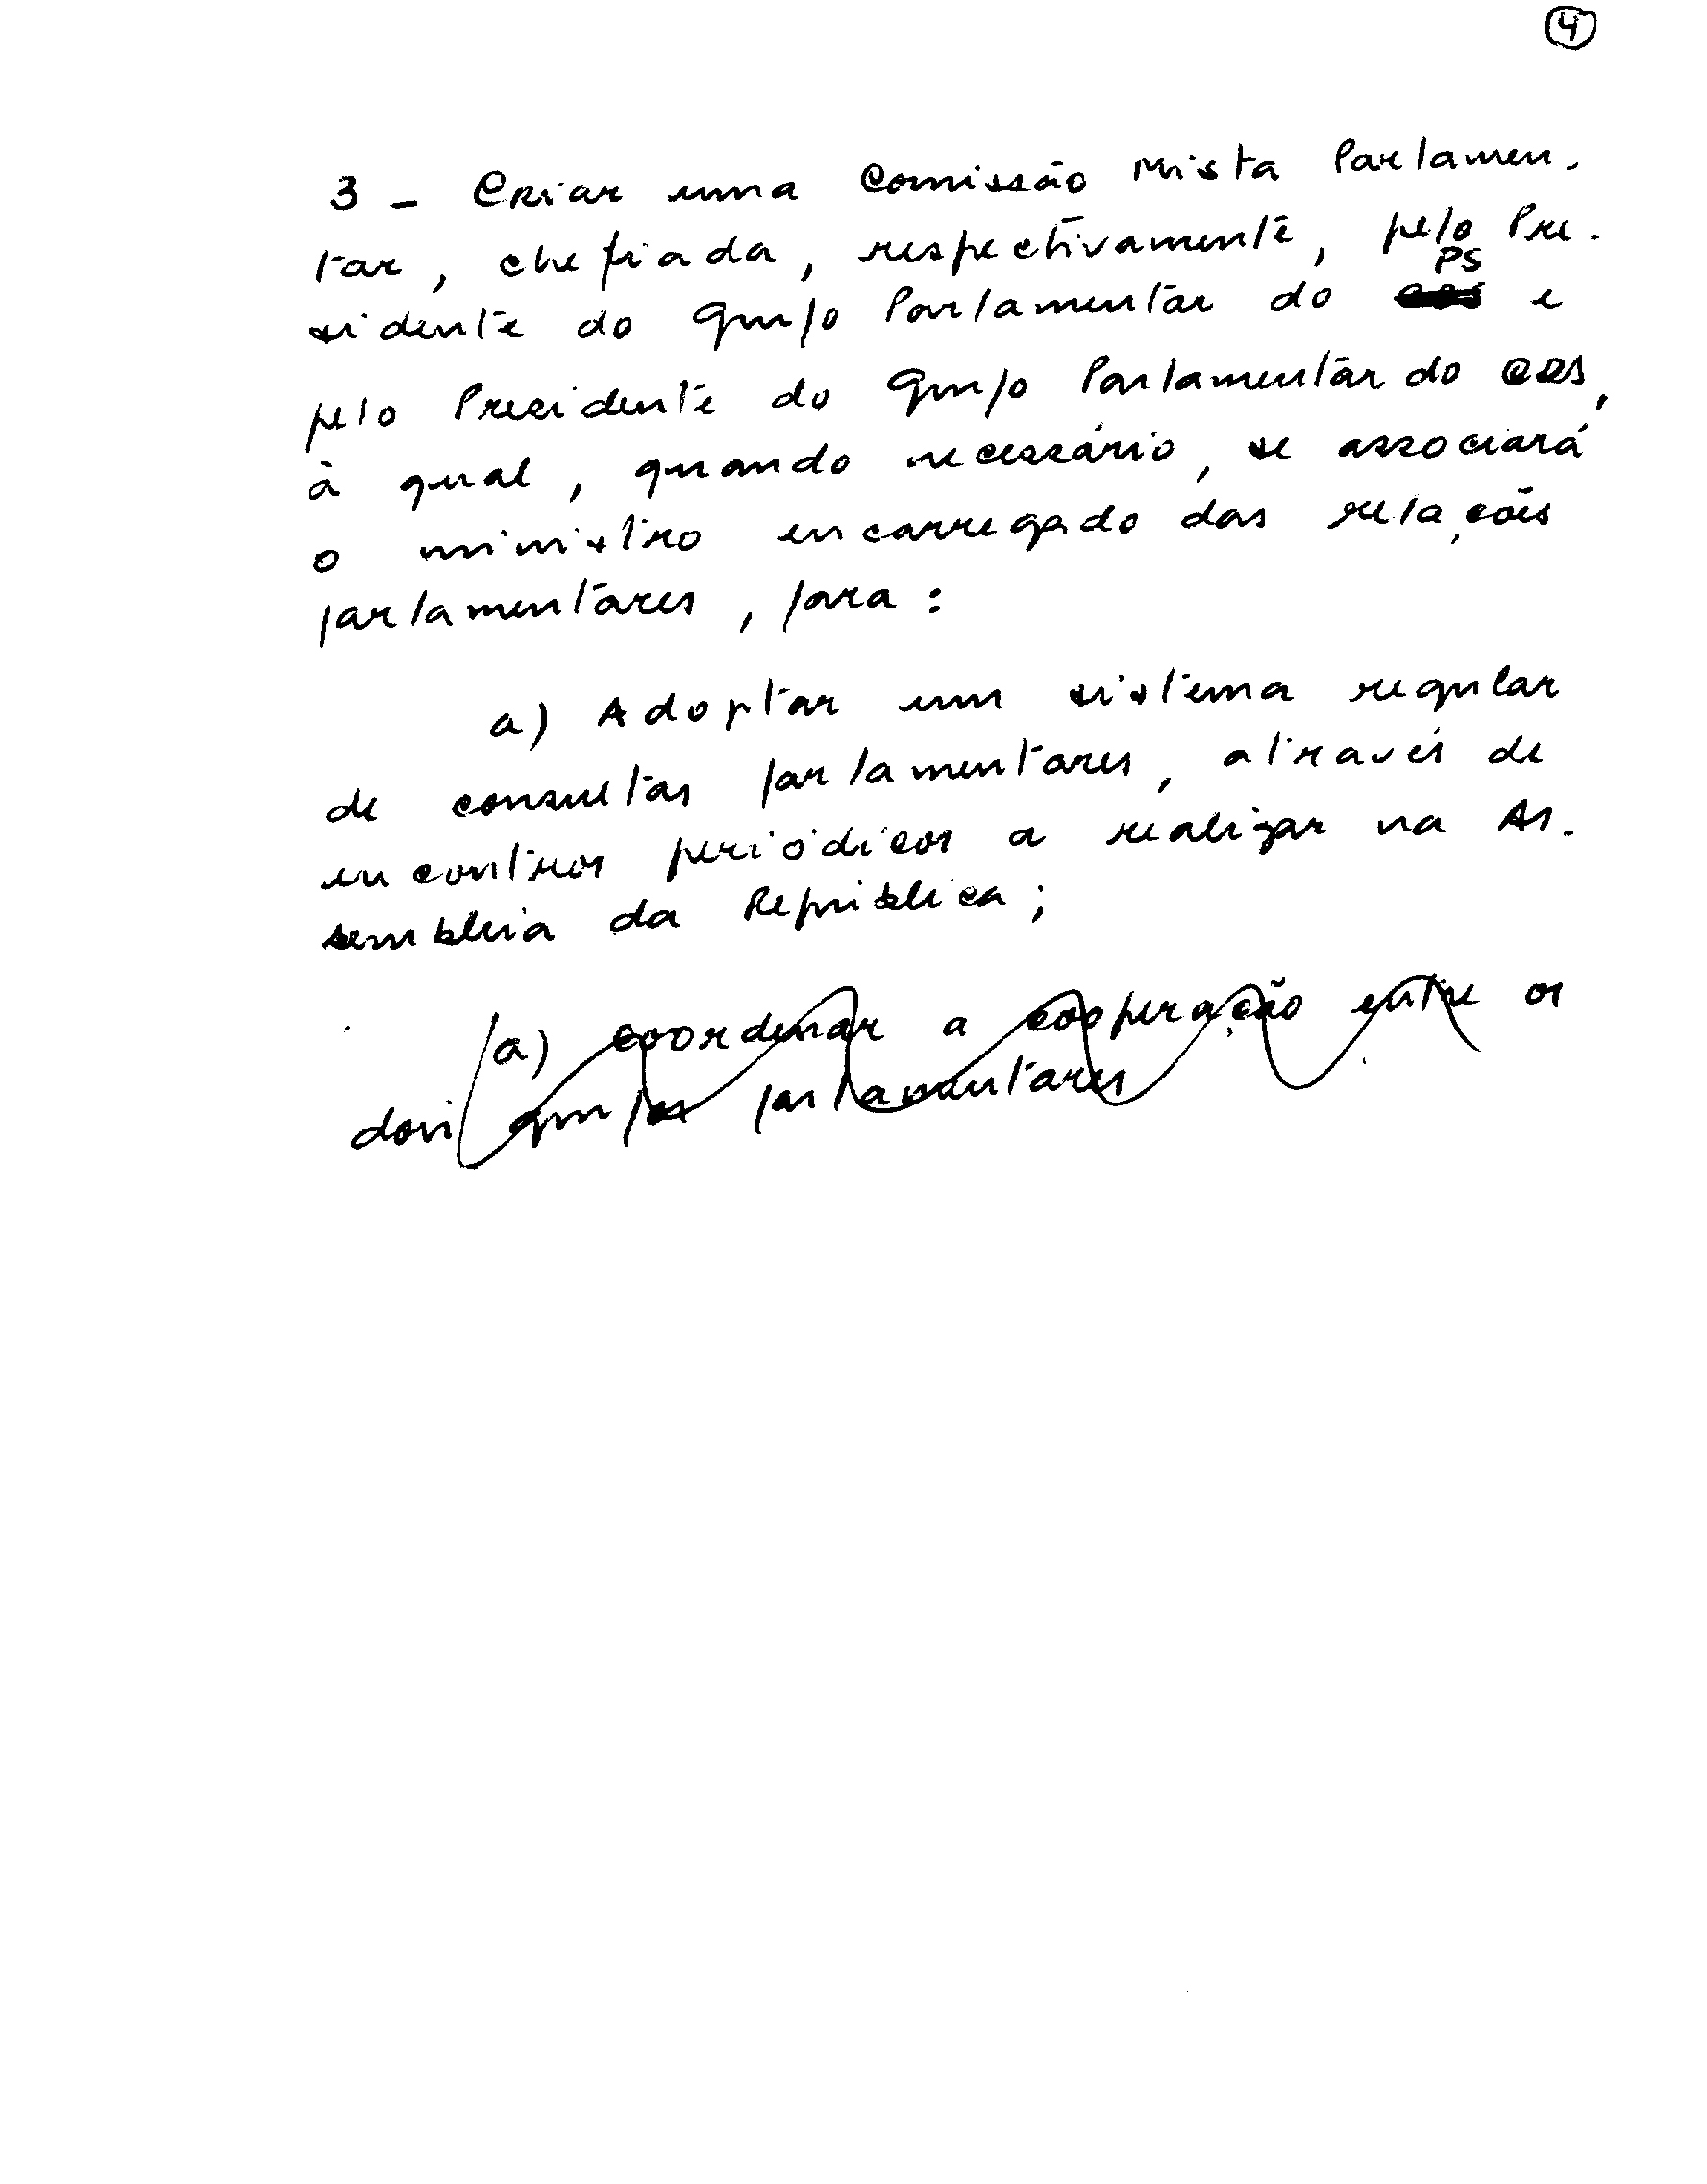 4
3 - Criar uma Comissão Mista Parlamen-
tar, chefiada, respectivamente, pelo Pre-
PS
sidente do Grupo Parlamentar do CDS e
pelo Presidente do Grupo Parlamentar do CDS,
à qual, quando necessário, se associará
o ministro encarregado das relações
parlamentares, para:
a) Adoptar um sistema regular
de consultas parlamentares, através de
encontros periódicos a realizar na As-
sembleia da República;
a) coordenar a cooperação entre os
dois grupos parlamentares